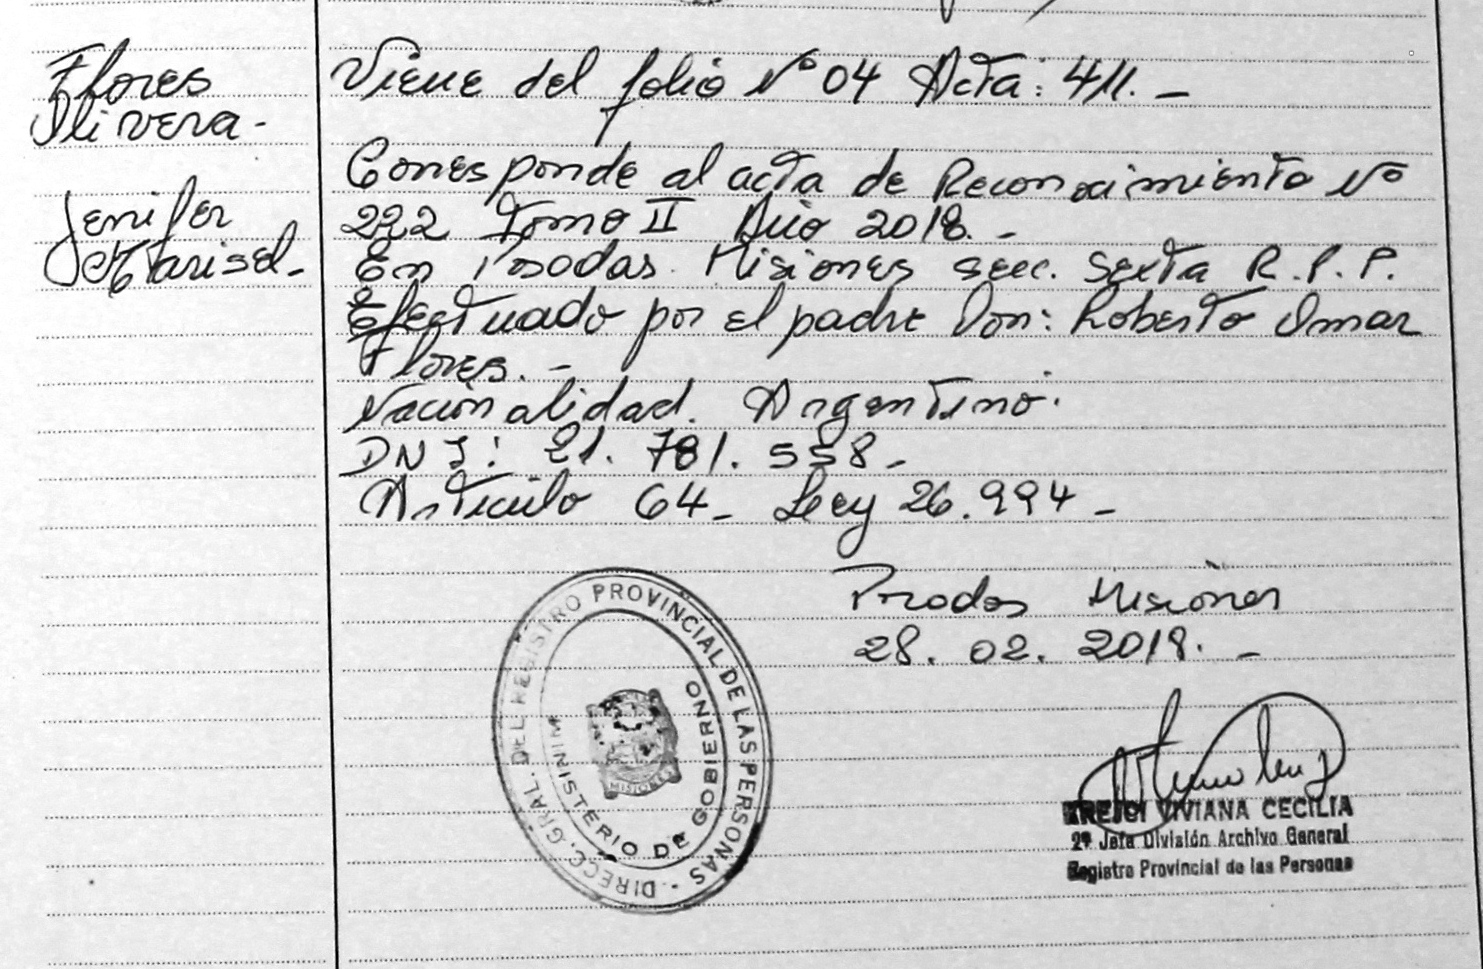 Flores
Olivera -
Jenifer
Marisel -
Viene del folio Nº 04 Acta: 411. -
Corresponde al acta de Reconocimiento Nº
222 Tomo II Año 2018. -
En Posadas. Misiones secc. Sexta R.P.P.
Efectuado por el padre Don: Roberto Omar
Flores. -
Nacionalidad. Argentino.
DNI: 21.781.558 -
Articulo 64 - Ley 26.994 -
Posadas Misiones
28. 02. 2018. -
DIRECC. GRAL. DEL REGISTRO PROVINCIAL DE LAS PERSONAS -
MINISTERIO DE GOBIERNO
MISIONES
VIVIANA CECILIA
2º Jefa División Archivo General
Registro Provincial de las Personas